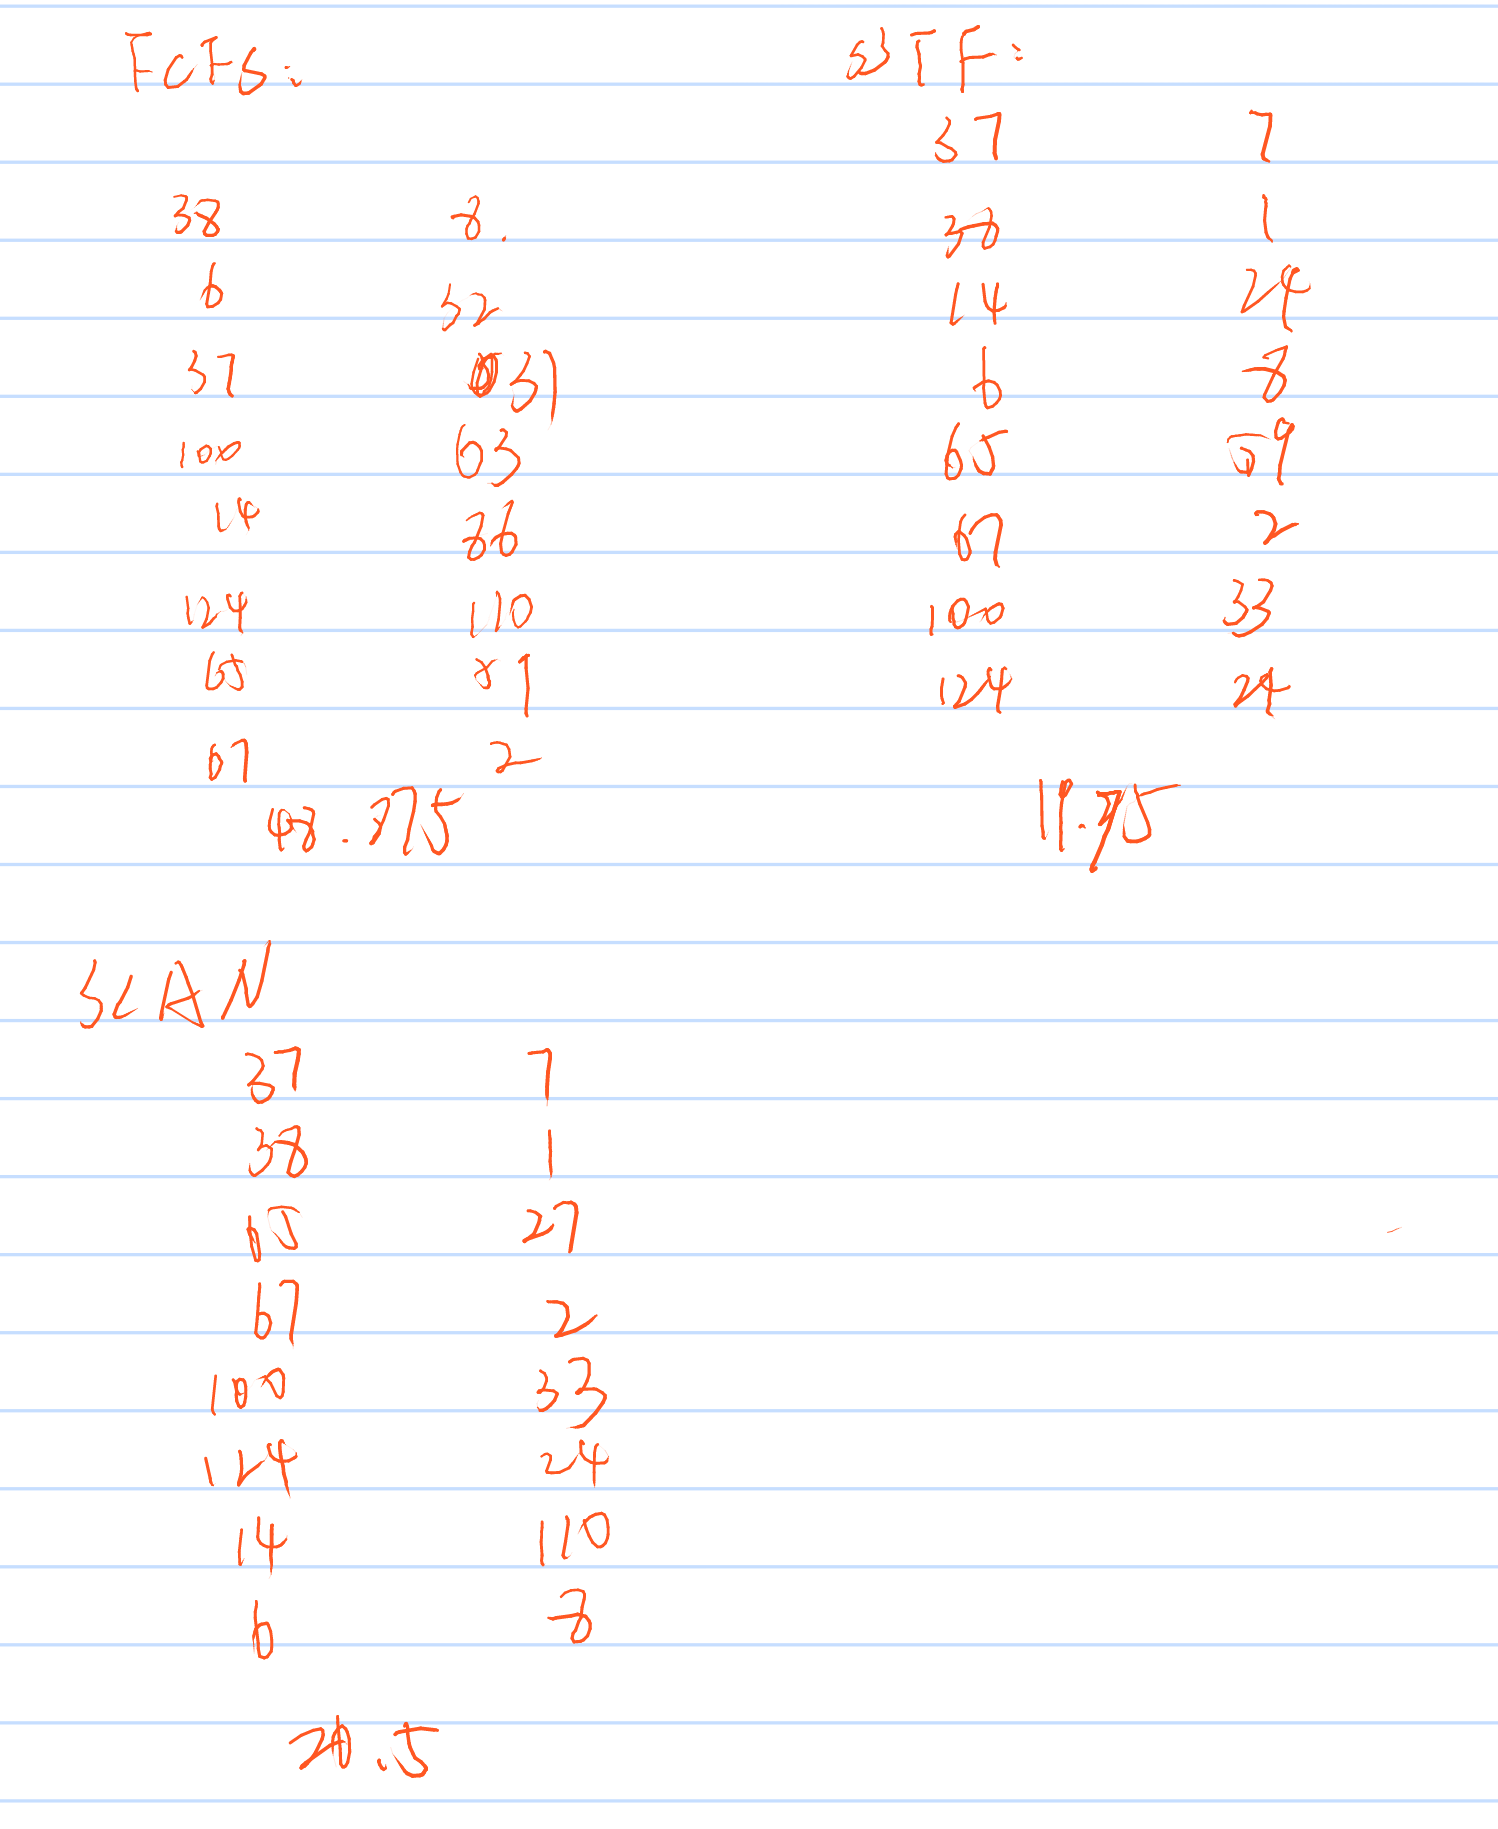 FCFS:
38 8.
6 32
37 31
100 63
14 86
124 110
65 59
67 2
48.875
SSTF:
37 7
38 1
14 24
6 8
65 59
67 2
100 33
124 24
19.75
SCAN
37 7
38 1
65 27
67 2
100 33
124 24
14 110
6 8
26.5